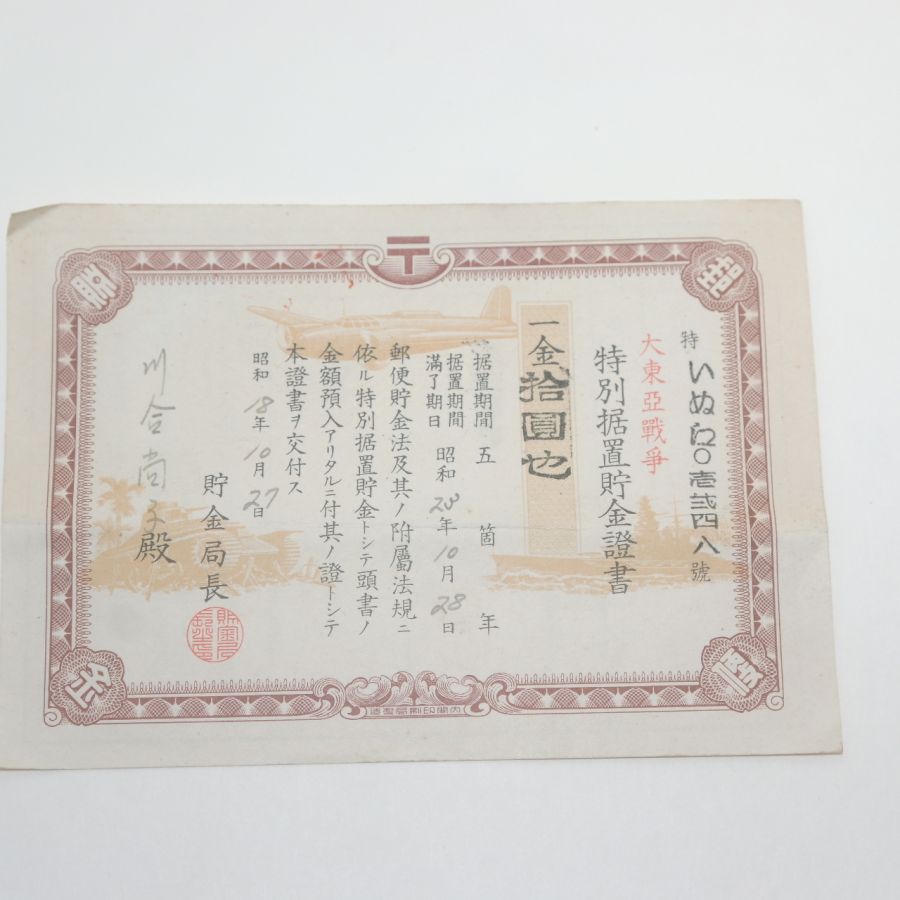 〒
特いぬに〇壱弐四八號
大東亞戰爭
特別据置貯金證書
一金拾圓也
据置期間五箇年
据置期間滿了期日 昭和23年10月28日
郵便貯金法及其ノ附屬法規ニ
依ル特別据置貯金トシテ頭書ノ
金額預入アリタルニ付其ノ證トシテ
本證書ヲ交付ス
昭和18年10月27日
貯金局長
川合尚子殿
內閣印刷局製造